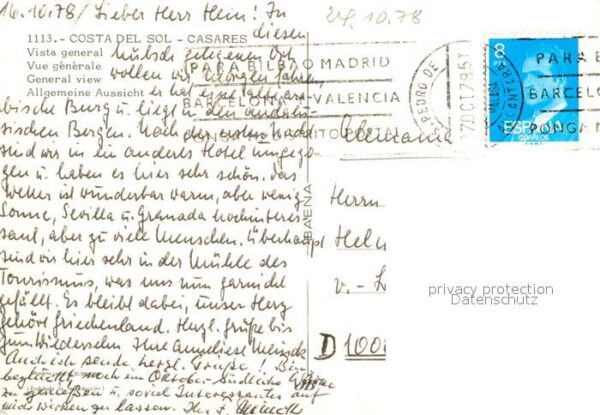 16.10.78/ Lieber Herr Hein! In
24.10.78
diesen
1113.- COSTA DEL SOL - CASARES
Vista general
Vue générale
General view
Allgemeine Aussicht
hübsch gelegenen Ort
wollen wir morgen fahren,
er hat eine alte ara-
bische Burg u. liegt in den andalu-
sischen Bergen. Nach der ersten Nacht
sind wir in ein anderes Hotel umgezo-
gen u. haben es hier sehr schön. Das
Wetter ist wunderbar warm, aber wenig
Sonne, Sevilla u. Granada hochinteres-
sant, aber zu viele Menschen. Überhaupt
sind wir hier sehr in der Mühle des
Tourismus, was uns nun garnicht
gefällt. Es bleibt dabei, unser Herz
gehört Griechenland. Herzl. Grüße bis
zum Wiedersehn Ihre Anneliese
Auch ich sende herzl. Grüße. Bin
beglückt noch im Oktober südliche Wärme
zu genießen u. soviel Interessantes auf
mich wirken zu lassen. Ihr F.
PARA BILBAO MADRID
BARCELONA-VALENCIA
PONGA DISTRITO POSTAL
PEDRO DE
17OCT78
MALAGA
8
PTA
ESPAÑA
CORREOS
PARA B
BARCELO
PONGA
Alemania
BAENA
Herrn
Hein
v. - L
D 1000
privacy protection
Datenschutz